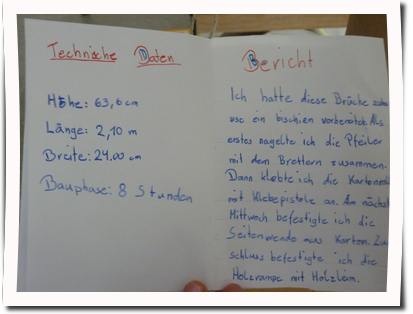 Technische Daten
Höhe: 63,6 cm
Länge: 2,10 m
Breite: 24.00 cm
Bauphase: 8 Stunden
Bericht
Ich hatte diese Brücke zuhau
use ein bischien vorbereitet. Als
erstes nagelte ich die Pfeiler
mit dem Brettern zusammen.
Dann klebte ich die
mit Klebepistole an. Am nächst
Mittwoch befestigte ich die
Seitenwende aus Karton. Zu
schluss befestigte ich die
Holzrampe mit Holzleim.